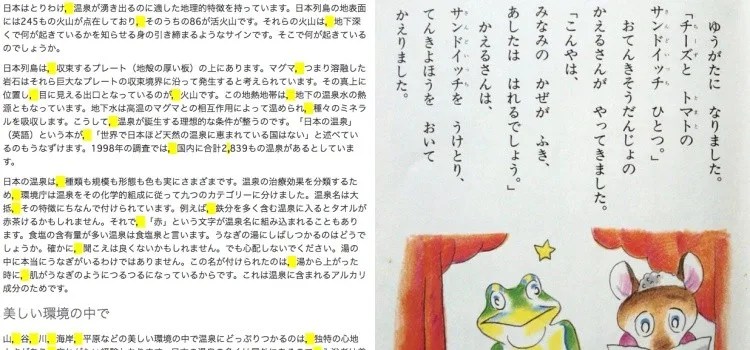 日本はとりわけ, 温泉が湧き出るのに適した地理的特徴を持っています。日本列島の地表面
には245もの火山が点在しており, そのうちの86が活火山です。それらの火山は, 地下深
くで何が起きているかを知らせる身の引き締まるようなサインです。そこで何が起きている
のでしょうか。
日本列島は, 収束するプレート（地殻の厚い板）の上にあります。マグマ, つまり溶融した
岩石はそれら巨大なプレートの収束境界に沿って発生すると考えられています。その真上に
位置し, 目に見える出口となっているのが, 火山です。この地熱帯は, 地下の温泉水の熱
源ともなっています。地下水は高温のマグマとの相互作用によって温められ, 種々のミネラ
ルを吸収します。こうして, 温泉が誕生する理想的な条件が整うのです。「日本の温泉」
（英語）という本が, 「世界で日本ほど天然の温泉に恵まれている国はない」と述べてい
るのもうなずけます。1998年の調査では, 国内に合計2,839もの温泉があるとしていま
す。
日本の温泉は, 種類も規模も形態も色も実にさまざまです。温泉の治療効果を分類するた
め, 環境庁は温泉をその化学的組成に従って九つのカテゴリーに分けました。温泉名は大
抵, その特徴にちなんで付けられています。例えば, 鉄分を多く含む温泉に入るとタオルが
赤茶けるかもしれません。それで, 「赤」という文字が温泉名に組み込まれることもあり
ます。食塩の含有量が多い温泉は食塩泉と言います。うなぎの湯にしばしつかるのはどうで
しょうか。確かに, 聞こえは良くないかもしれません。でも心配しないでください。湯の
中に本当にうなぎがいるわけではありません。この名が付けられたのは, 湯から上がった
時に, 肌がうなぎのようにつるつるになっているからです。これは温泉に含まれるアルカリ
成分のためです。
美しい環境の中で
山, 谷, 川, 海岸, 平原などの美しい環境の中で温泉にどっぷりつかるのは, 独特の心地
ゆうがたに なりました。
「チーズと トマトの
サンドイッチ ひとつ。」
おてんきそうだんじょの
かえるさんが やってきました。
「こんやは、
みなみの かぜが ふき、
あしたは はれるでしょう。」
かえるさんは、
サンドイッチを うけとり、
てんきよほうを おいて
かえりました。